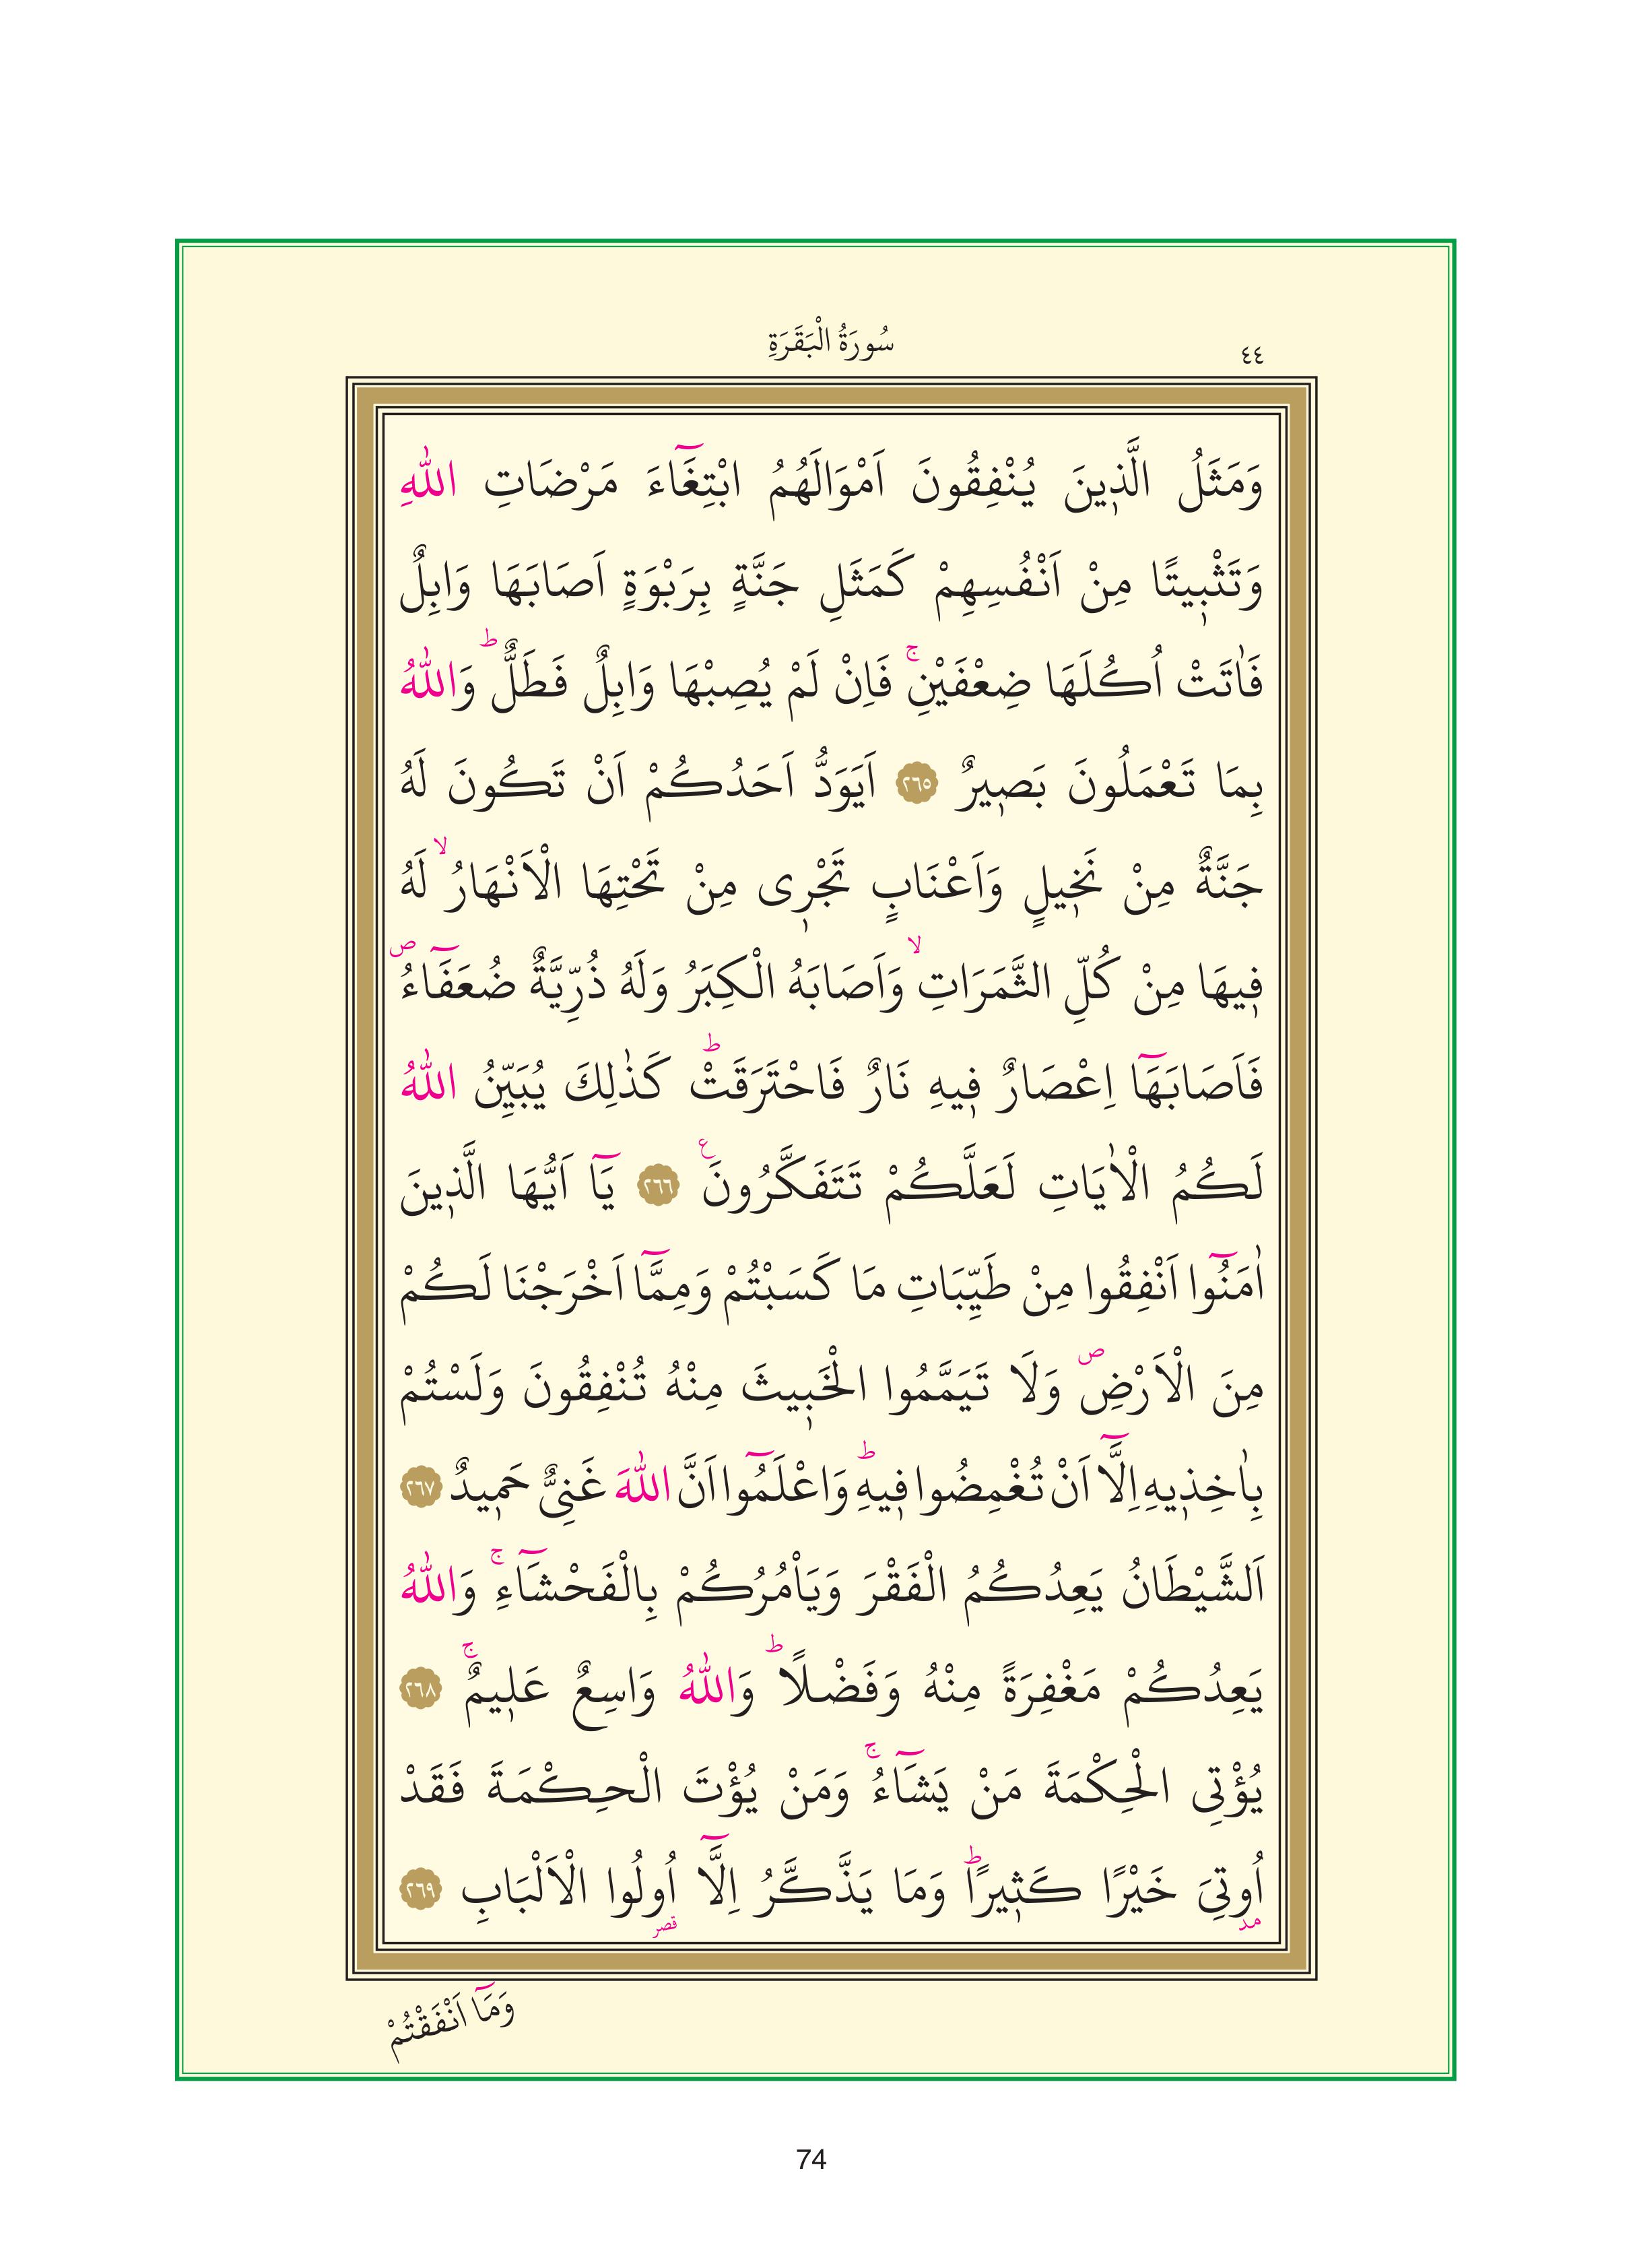 ٤٤ سُورَةُ الْبَقَرَةِ
وَمَثَلُ الَّذ۪ينَ يُنْفِقُونَ اَمْوَالَهُمُ ابْتِغَٓاءَ مَرْضَاتِ اللّٰهِ
وَتَثْب۪يتًا مِنْ اَنْفُسِهِمْ كَمَثَلِ جَنَّةٍ بِرَبْوَةٍ اَصَابَهَا وَابِلٌ
فَاٰتَتْ اُكُلَهَا ضِعْفَيْنِۚ فَاِنْ لَمْ يُصِبْهَا وَابِلٌ فَطَلٌّۜ وَاللّٰهُ
بِمَا تَعْمَلُونَ بَص۪يرٌ ٢٦٥ اَيَوَدُّ اَحَدُكُمْ اَنْ تَكُونَ لَهُ
جَنَّةٌ مِنْ نَخ۪يلٍ وَاَعْنَابٍ تَجْر۪ى مِنْ تَحْتِهَا الْاَنْهَارُۙ لَهُ
ف۪يهَا مِنْ كُلِّ الثَّمَرَاتِۙ وَاَصَابَهُ الْكِبَرُ وَلَهُ ذُرِّيَّةٌ ضُعَفَٓاءُۖ
فَاَصَابَهَٓا اِعْصَارٌ ف۪يهِ نَارٌ فَاحْتَرَقَتْۜ كَذٰلِكَ يُبَيِّنُ اللّٰهُ
لَكُمُ الْاٰيَاتِ لَعَلَّكُمْ تَتَفَكَّرُونَ ع ٢٦٦ يَٓا اَيُّهَا الَّذ۪ينَ
اٰمَنُٓوا اَنْفِقُوا مِنْ طَيِّبَاتِ مَا كَسَبْتُمْ وَمِمَّٓا اَخْرَجْنَا لَكُمْ
مِنَ الْاَرْضِۖ وَلَا تَيَمَّمُوا الْخَب۪يثَ مِنْهُ تُنْفِقُونَ وَلَسْتُمْ
بِاٰخِذ۪يهِ اِلَّٓا اَنْ تُغْمِضُوا ف۪يهِۜ وَاعْلَمُٓوا اَنَّ اللّٰهَ غَنِىٌّ حَم۪يدٌ ٢٦٧
اَلشَّيْطَانُ يَعِدُكُمُ الْفَقْرَ وَيَاْمُرُكُمْ بِالْفَحْشَٓاءِۚ وَاللّٰهُ
يَعِدُكُمْ مَغْفِرَةً مِنْهُ وَفَضْلًاۜ وَاللّٰهُ وَاسِعٌ عَل۪يمٌۚ ٢٦٨
يُؤْتِى الْحِكْمَةَ مَنْ يَشَٓاءُۚ وَمَنْ يُؤْتَ الْحِكْمَةَ فَقَدْ
اُو۫تِىَ خَيْرًا كَث۪يرًاۜ وَمَا يَذَّكَّرُ اِلَّٓا اُولُوا الْاَلْبَابِ ٢٦٩
مد قصر
وَمَٓا اَنْفَقْتُمْ
74